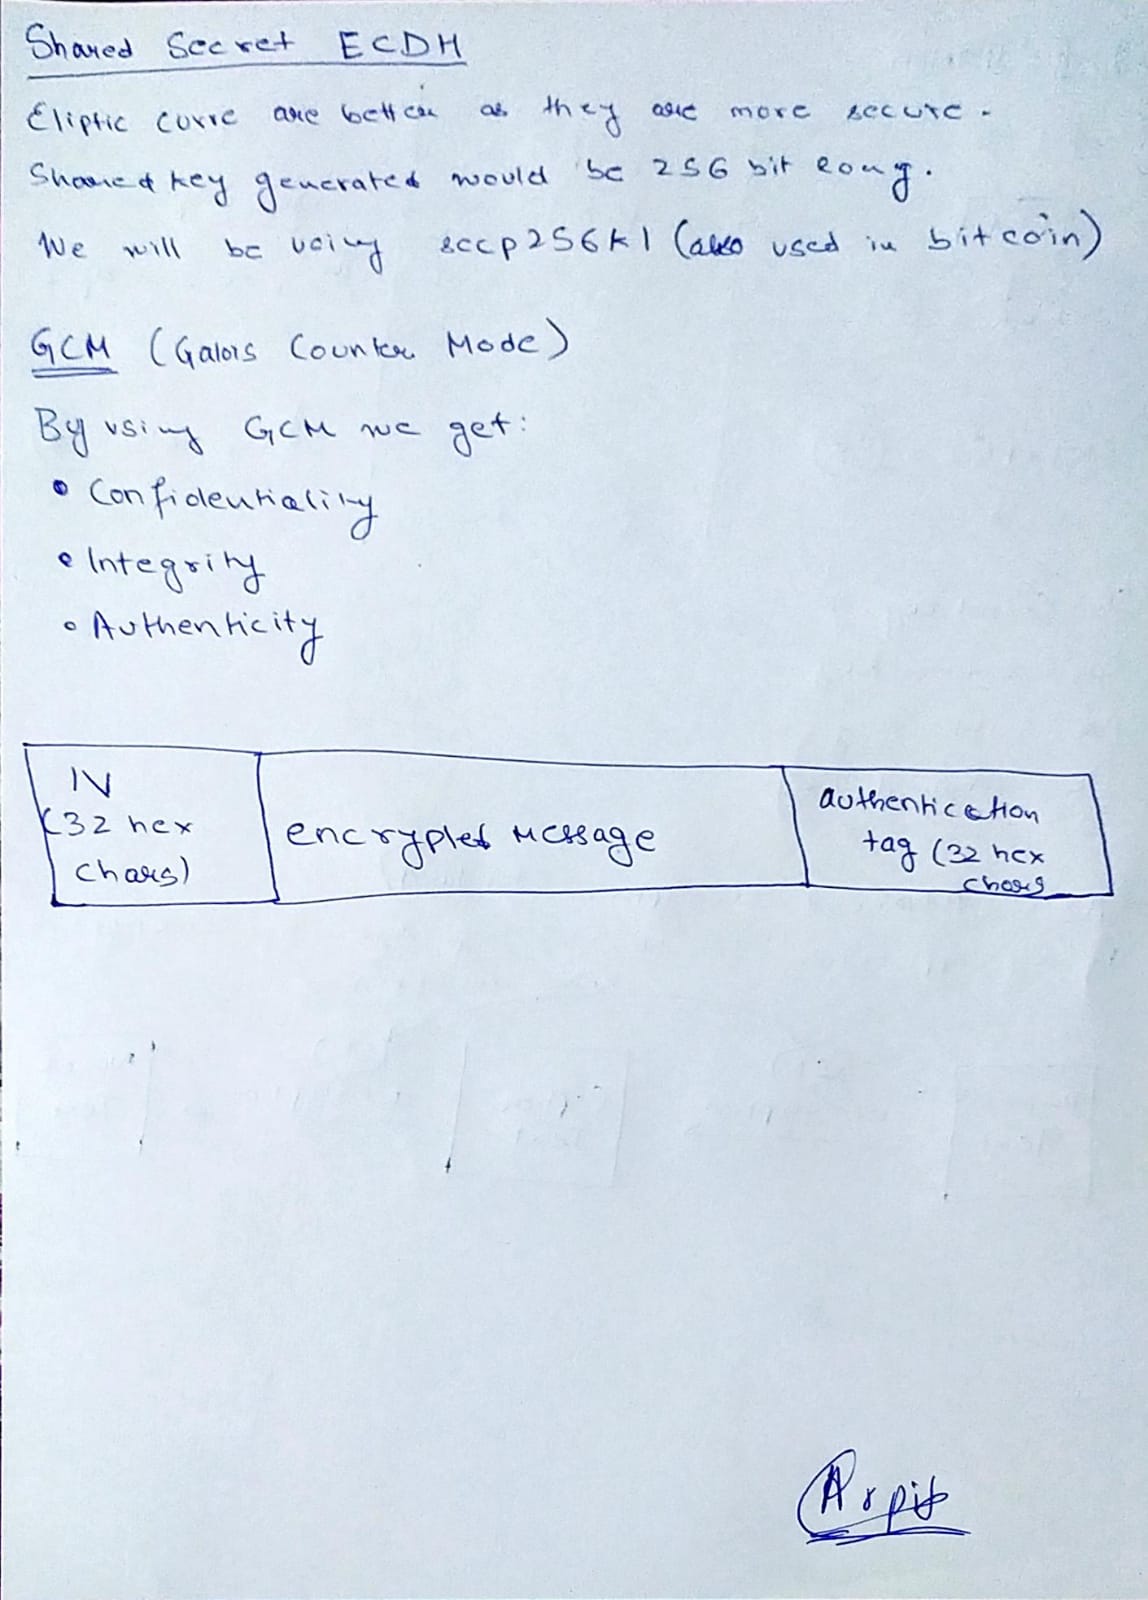 Shared Secret ECDH
Eliptic curve are better as they are more secure.
Shared key generated would be 256 bit long.
We will be using secp256k1 (also used in bitcoin)
GCM (Galois Counter Mode)
By using GCM we get:
• Confidentiality
• Integrity
• Authenticity
IV
(32 hex
chars)
encrypted message
authentication
tag (32 hex
chars
Arpit